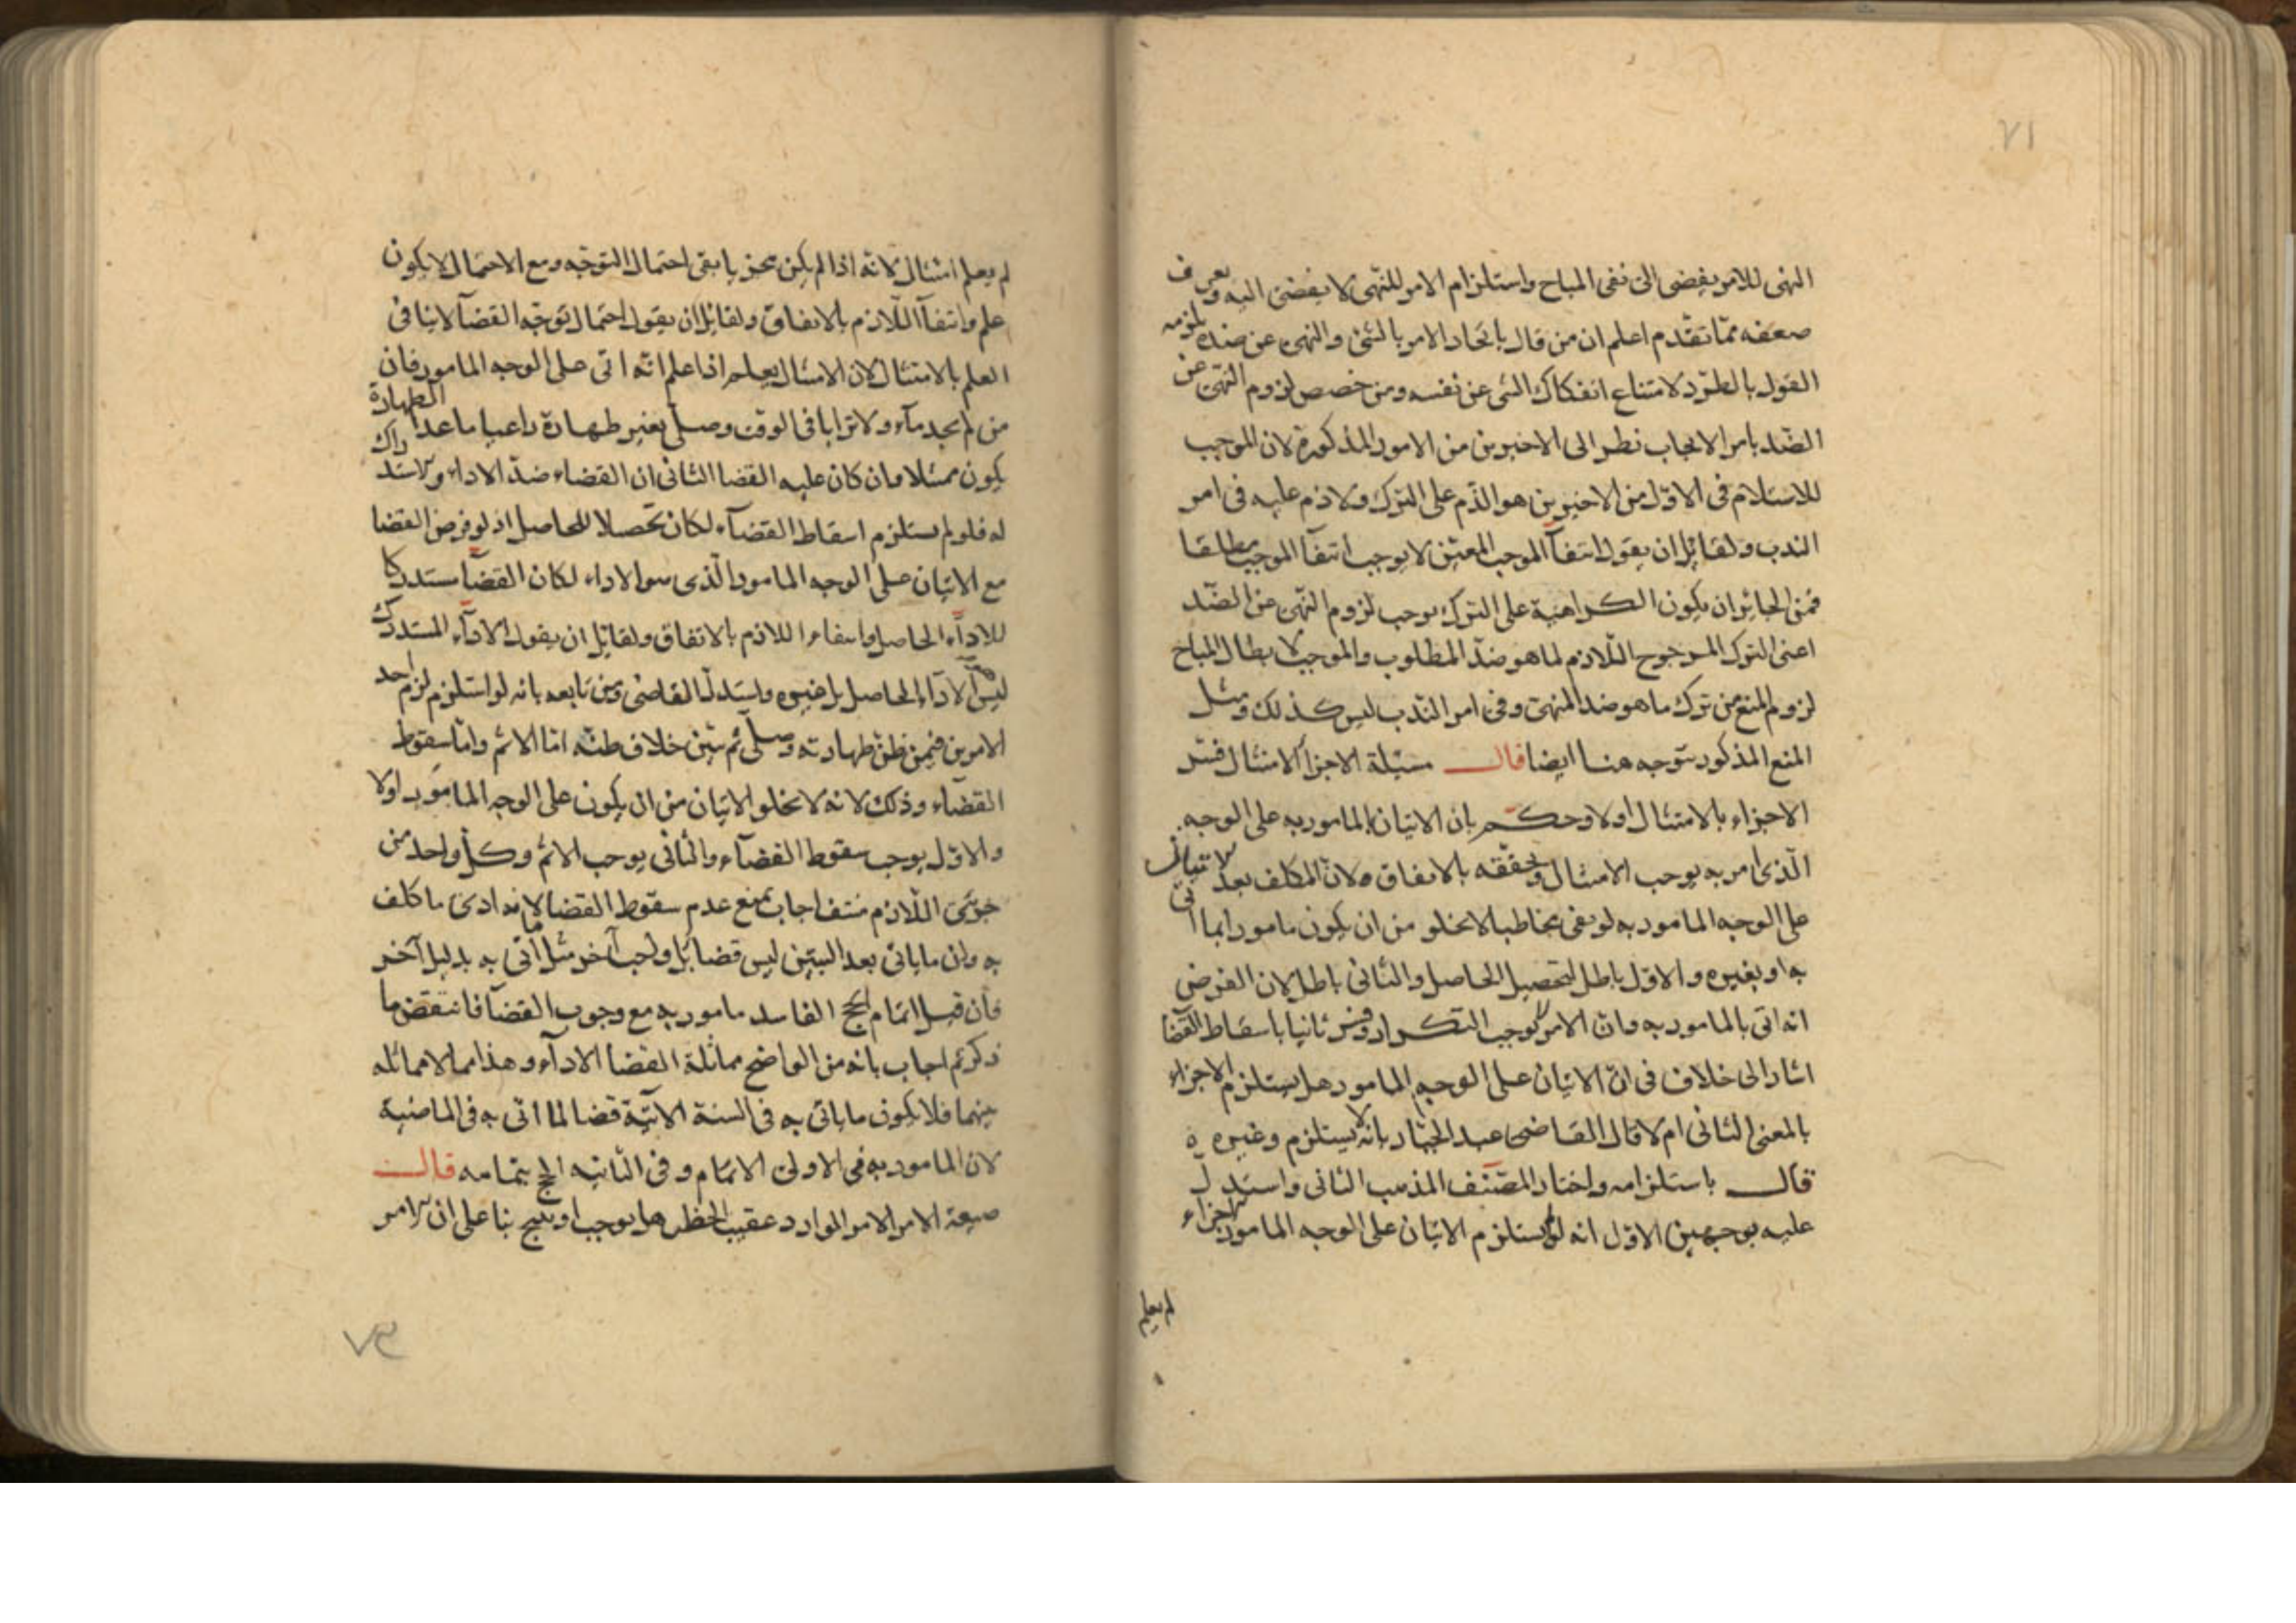 ٧١
النهى للامر يفضى الى نفى المباح واستلزام الامر للنهى لا يفضى اليه ويعرف
ضعفه مما تقدم اعلم ان من قال باتحاد الامر بالشئ والنهى عن ضده يلزمه
القول بالطرد لامتناع انفكاك الشى عن نفسه ومن خصص لزوم النهى عن
الضد بامر الايجاب نظر الى الاخيرين من الامور المذكورة لان الموجب
للاستلام فى الاول من الاخيرين هو الذم على الترك ولا ذم عليه فى امر
الندب ولقائل ان يقول انتفآ الموجب المعين لا يوجب انتفآ الموجب مطلقا
فمن الجايز ان يكون الكراهية على الترك يوجب لزوم النهى عن الضد
اعنى الترك المرجوح اللازم لما هو ضد المطلوب والموجب لابطال المباح
لزوم المنع من ترك ما هو ضد المنهى وفى امر الندب ليس كذلك ومثل
المنع المذكور يتوجه هنا ايضا قال مسئلة الاجزآ الامتثال فسر
الاجزاء بالامتثال اولا وحكم بان الاتيان بالمامور به على الوجه
الذى امر به يوجب الامتثال وتحققه بالاتفاق ه لان المكلف بعد الاتيان
على الوجه المامور به لو بقى مخاطبا لا يخلو من ان يكون مامورا بما اتى
به او بغيره والاول باطل لتحصيل الحاصل والثانى باطل لان الفرض
انه اتى بالمامور به وان الامر لا يوجب التكرار وفسر ثانيا باسقاط القضا
اشار الى خلاف فى ان الاتيان على الوجه المامور هل يستلزم الاجزاء
بالمعنى الثانى ام لا قال القاضى عبد الجبار بانه لا يستلزم وغيره ه
قال باستلزامه واختار المصنف المذهب الثانى واستدل
عليه بوجهين الاول انه لو لم يستلزم الاتيان على الوجه المامور الاجزاء
لم يعلم
لم يعلم امتثال لانه اذا لم يكن مجزيا بقى احتمال التوجه ومع الاحتمال لا يكون
علم وانتفآ اللازم بالاتفاق ولقائل ان يقول احتمال توجه القضآ لا ينافى
العلم بالامتثال لان الامتثال يعلم اذا علم انه اتى على الوجه المامور فان
من لم يجد مآء ولا ترابا فى الوقت وصلى بغير طهارة راعيا ما عدا الطهارة
يكون ممتثلا وان كان عليه القضا الثانى ان القضاء ضد الاداء ولاستدراك
له فلو لم يستلزم اسقاط القضآء لكان تحصلا للحاصل اذ لو فرض القضا
مع الاتيان على الوجه المامور الذى هو الاداء لكان القضآ مستدركا
للادآء الحاصل وانتفاء اللازم بالاتفاق ولقائل ان يقول الادآء المستدرك
ليس الادآء الحاصل بل غيره واستدل القاضى ومن تابعه بانه لو استلزم لزم احد
الامرين فيمن ظن طهارته وصلى ثم تبين خلاف ظنه اما الاثم واما سقوط
القضاء وذلك لانه لا يخلو الاتيان من ان يكون على الوجه المامور او لا
والاول يوجب سقوط القضآء والثانى يوجب الاثم وكل واحد من
جزئى اللازم منتف اجاب بمنع عدم سقوط القضا لانه ادى ما كلف
به وان ما ياتى بعد التبين ليس قضا بل واجب آخر مثل ما اتى به بدليل آخر
فان قيل اتمام الحج الفاسد مامور به مع وجوب القضآ فانتقض ما
ذكر ثم اجاب بانه من الواضح مماثلة القضآ الادآء وهذا مما لا مماثله
بينهما فلا يكون ما ياتى به فى السنة الآتية قضا لما اتى به فى الماضية
لان المامور به فى الاولى الاتمام وفى الثانيه الحج بتمامه قال
صيغة الامر الامر الوارد عقيب الحظر هل يوجب او يبيح بنا على ان الامر
٧٢